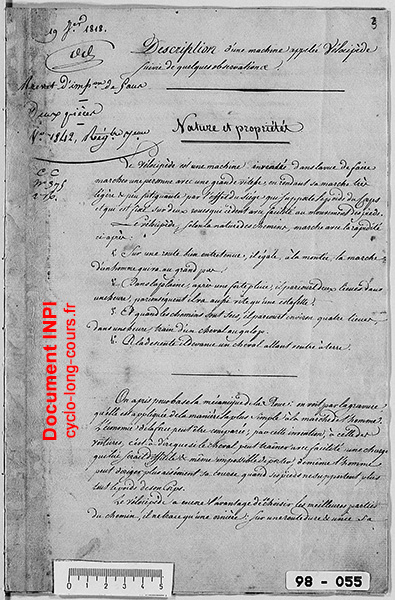 3
19 Jer 1818.
Description d'une machine appelée Vélocipède
suivie de quelques observations.
Brevet d'impon de 5 ans
Deux pièces
No 1842, Régtre
Nature et propriétés
C. C.
Le Vélocipède est une machine inventée dans la vue de faire
marcher une personne avec une grande vitesse, en rendant sa marche très
légère et peu fatiguante par l'effet du siège qui supporte le poids du Corps
et qui est fixé sur deux roues qui cèdent avec facilité au mouvement des pieds.
Le Vélocipède, selon la nature des chemins, marche avec la rapidité
ci-après:
1o Sur une route bien entretenue, il égale, à la montée, la marche
d'un homme qui va au grand pas.
2o Dans la plaine, après une forte pluie, il parcourt deux lieues dans
une heure, par conséquent il va aussi vite qu'une estafette.
3o Et quand les chemins sont secs, il parcourt environ quatre lieues
dans une heure, train d'un cheval au galop.
4o A la descente il devance un cheval allant ventre à terre.
On a pris pour base la mécanique de la Roue: on voit par la gravure
qu'elle est appliquée de la manière la plus simple à la marche de l'homme.
L'économie de la force peut être comparée, par cette invention, à celle des
voitures, c'est à dire que si le cheval peut traîner avec facilité une charge
qui lui serait difficile et même impossible de porter, de même l'homme
peut diriger plus aisément sa course, quand ses pieds ne supportent plus
tout le poids de son Corps.
Le Vélocipède a encore l'avantage de choisir les meilleures parties
du chemin, il ne trace qu'une ornière: Sur une route dure et unie sa
Document INPI
cyclo-long-cours.fr
0 1 2 3 4 5
98 - 055